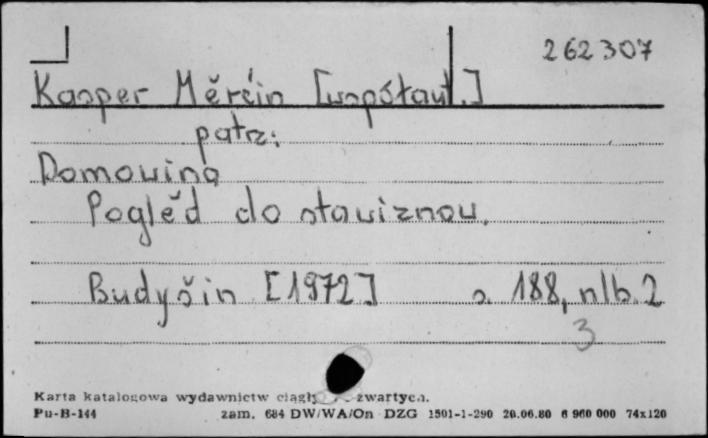 262307
Kasper Měrćin [współaut.]
patrz:
Domowina
Poglěd do stawiznow.
Budyšin [1972] s. 188, nlb. 2
3
Karta katalogowa wydawnictw zwartych.
Pu-B-144 zam. 684 DW/WA/On DZG 1501-1-290 20.06.80 6 960 000 74x120